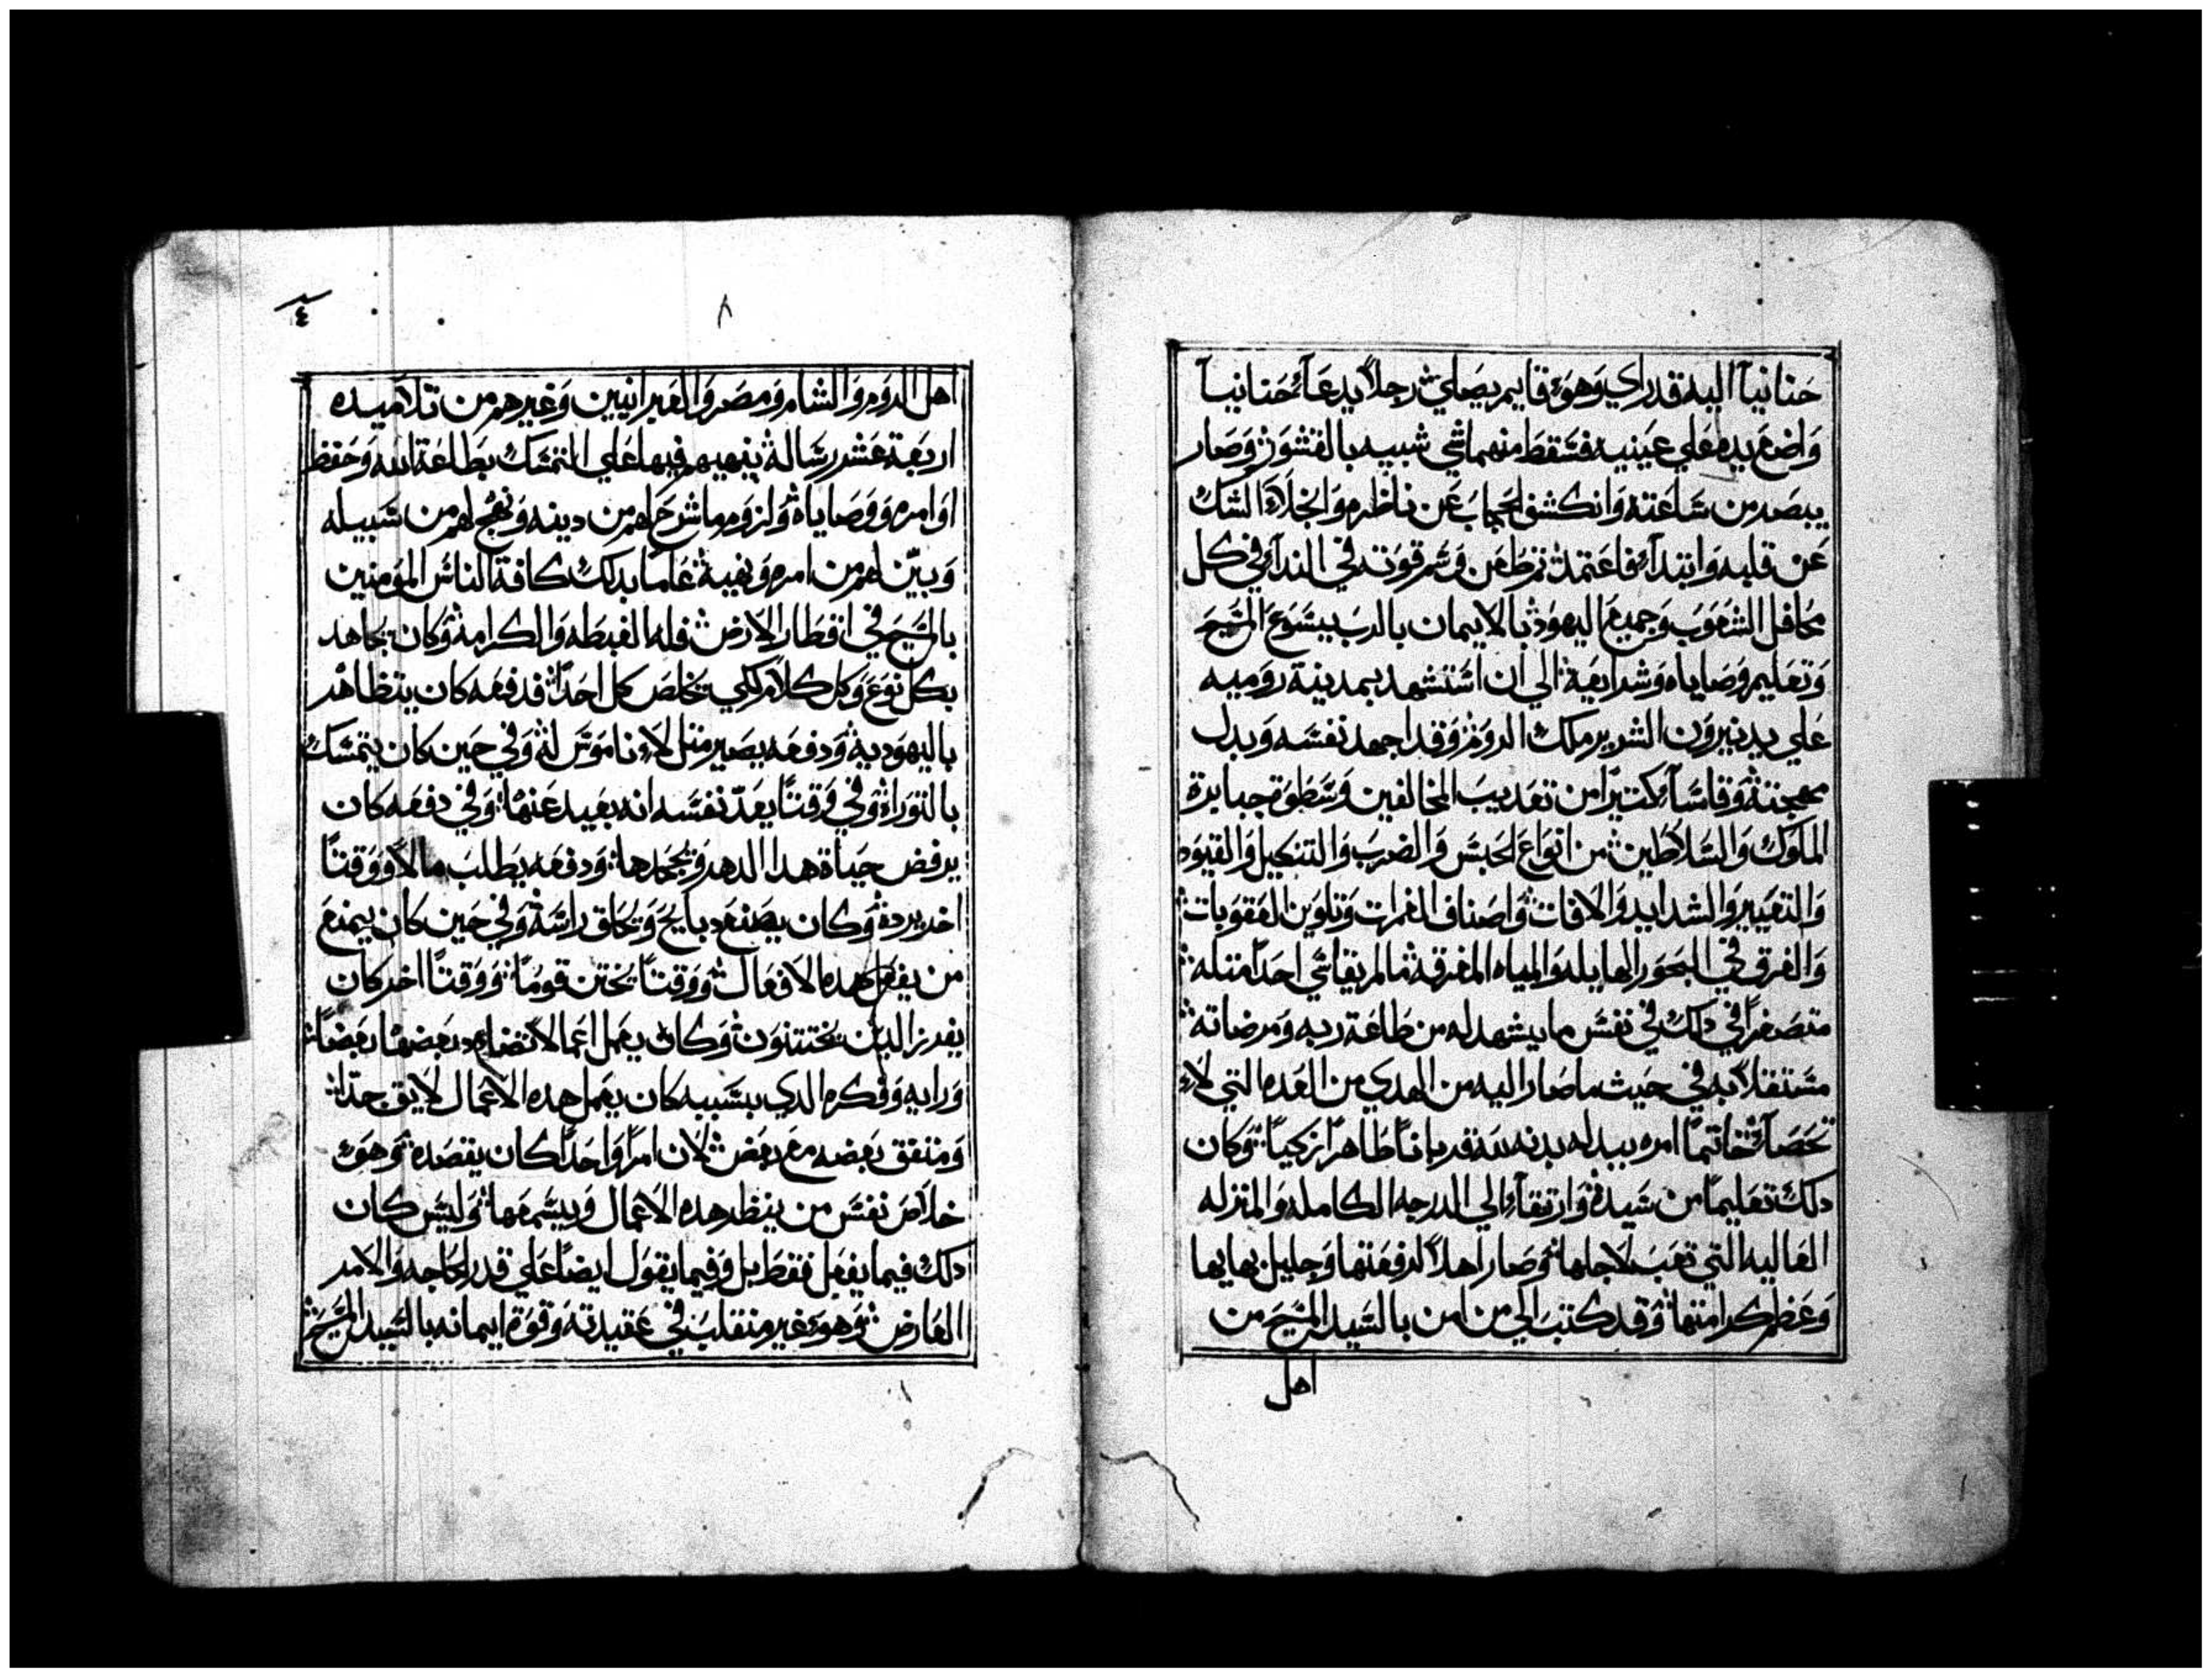 حنانياآ اليه قد راي وهو قايم يصلي رجلاً يدعآ حنانيآ
واضع يده علي عينيه فسقط منهما شي شبيه بالقشور وصار
يبصر من ساعته وانكشف الحجاب عن ناظره وانجلآ الشك
عن قلبه وابتدآ فاعتمد ثم طعن وشم قوته في الندآ في كل
محافل الشعوب وجميع اليهود بالايمان بالرب يسوع المسيح
وتعليم وصاياه وشرايعه الي ان استشهد بمدينة روميه
علي يد نيرون الشرير ملك الروم وقد اجهد نفسه وبدل
مهجته وقاسآ كتيرًا من تعديب المخالفين وسطوة جبابرة
الملوك والسلاطين من انواع الحبس والضرب والتنكيل والقيود
والتعيير والشدايد والافات واصناف الغمرات وتلوين العقوبات
والغرق في البحور الهايله والمياه المغرقه ما لم يقاسي احدًا متله
متصغرًا في دلك في نفس ما يشهد له من طاعة ربه ومرضاته
مستقلاً به في حيث ما صار اليه من الهدي من العده التي لا
تحصآ خاتمًا امره ببدله بدنه لله قربانًا طاهرًا زكيًا وكان
دلك تعليمًا من سيده وارتقآ الي الدرجه الكامله والمنزله
العاليه التي تعب لاجلها وصار اهلاً لرفعتها وجليل بهايها
وعظم كرامتها وقد كتب الي من امن بالسيد المسيح من
اهل
٤
٨
اهل الروم والشام ومصر والعبرانيين وغيرهم من تلاميده
اربعة عشر رسالة ينهيهم فيها علي التمسك بطاعة الله وحفظ
اوامره ووصاياه ولزوم ما شرح لهم من دينه ونهج لهم من سبيله
وبيّن لهم من امره ونهيه عامًا بدلك كافة الناس المومنين
بالمسيح في اقطار الارض فله الغبطه والكرامه وكان يجاهد
بكل نوع وكل كلام لكي يخلص كل احدًا فدفعه كان يتظاهر
باليهوديه ودفعه يصير متل لا ناموس له وفي حين كان يتمسك
بالتوراه وفي وقتًا يعدّ نفسه انه بعيد عنها وفي دفعه كان
يرفض حياة هدا الدهر ويجحدها ودفعه يطلب مالاً ووقتًا
اخر يرده وكان يصنع دبايح ويحلق راسه وفي حين كان يمنع
من يفعل هده الافعال ووقتًا يختن قومًا ووقتًا اخر كان
يفرز الدين يختتنون وكان يعمل اعمالاً تضادد بعضها بعضًا
ورايه وفكره الدي بسببه كان يعمل هده الاعمال لايق جدًا
ومتفق بعضه مع بعض لان امرًا واحدًا كان يقصده وهو
خلاص نفس من ينظر هده الاعمال ويسمعها وليس كان
دلك فيما يفعل فقط بل وفيما يقول ايضًا علي قدر الحاجه والامر
العارض وهو غير منقلب في عقيدته وقوة ايمانه بالسيد المسيح